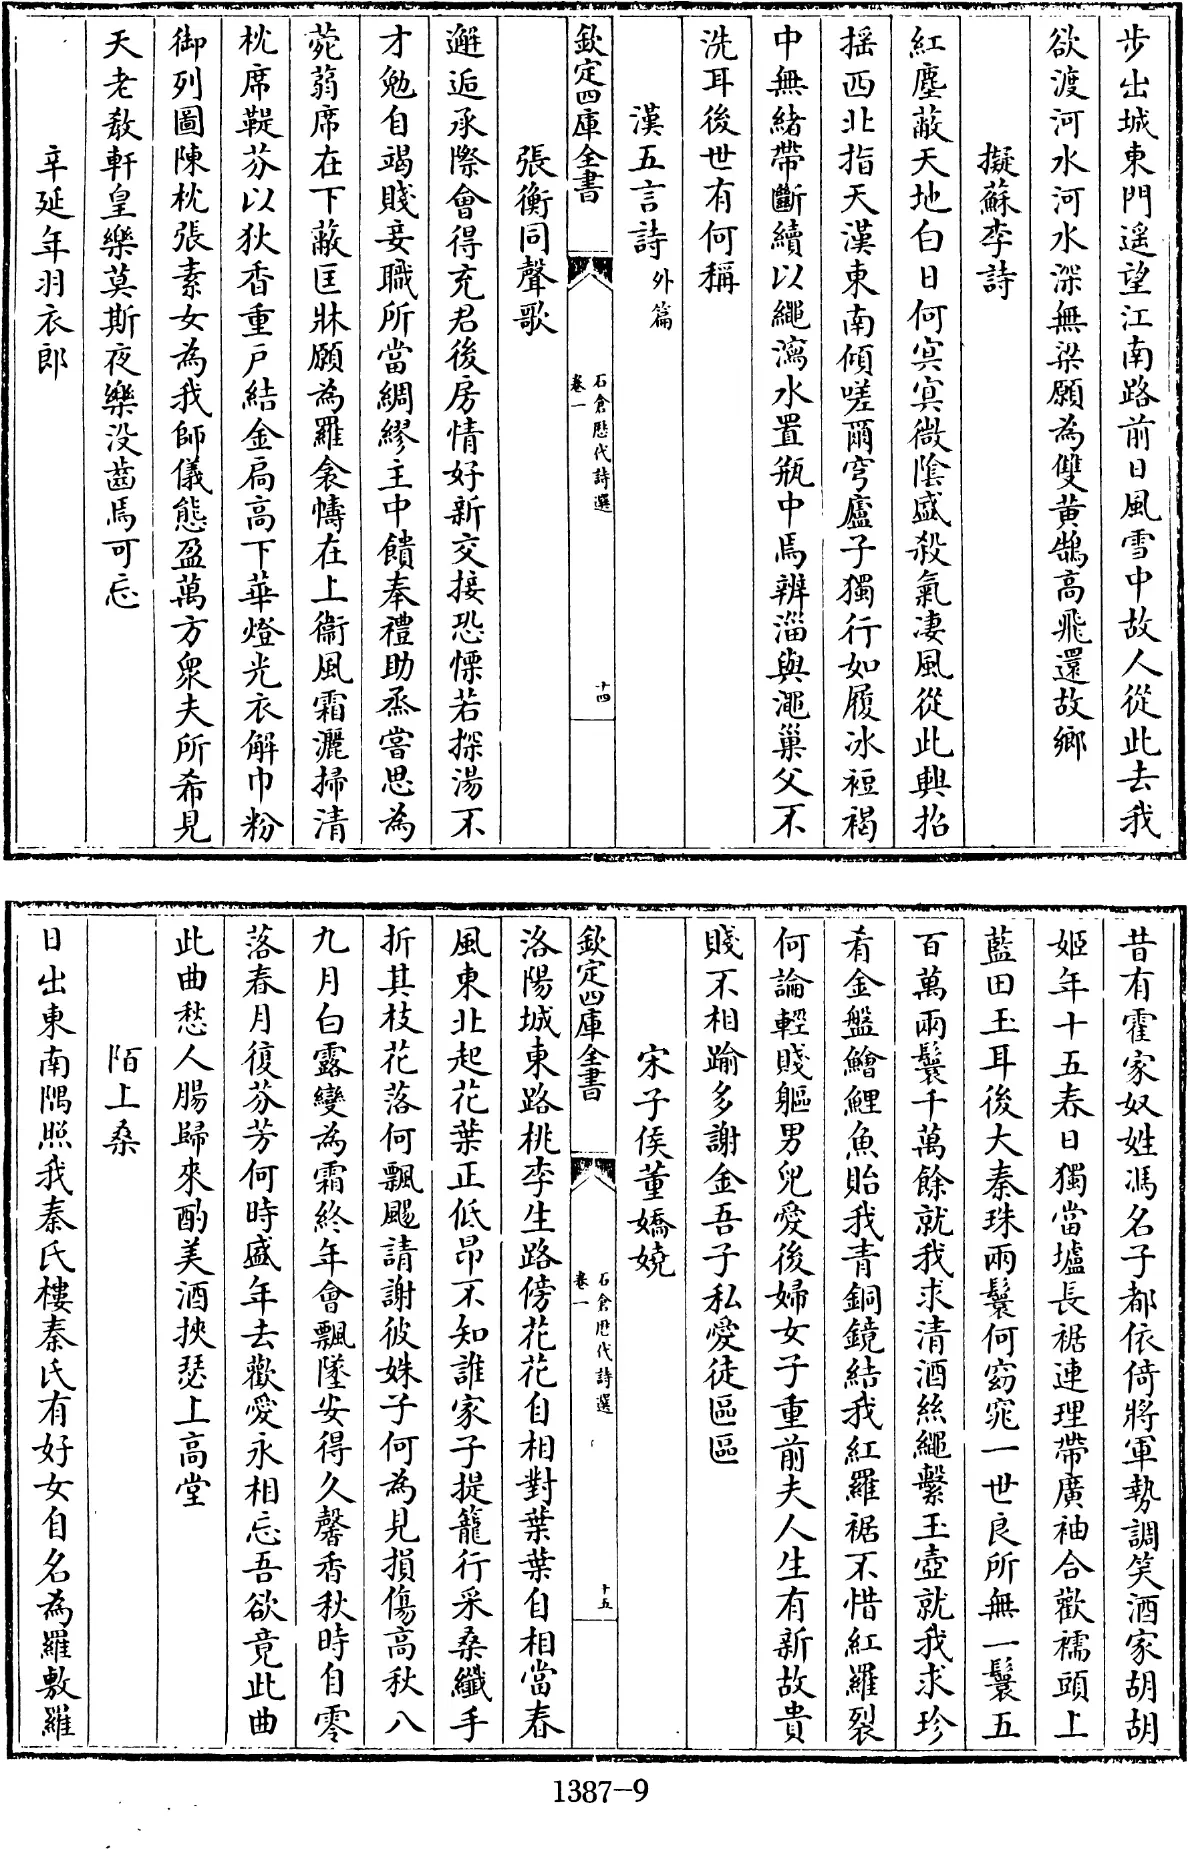 步出城東門遥望江南路前日風雪中故人從此去我
欲渡河水河水深無梁願為雙黄鵠高飛還故鄉
擬蘇李詩
紅塵蔽天地白日何冥冥微陰盛殺氣凄風從此興招
揺西北指天漢東南傾嗟爾穹廬子獨行如履冰裋褐
中無緒帶斷續以繩瀉水置瓶中焉辨淄與澠巢父不
洗耳後世有何稱
漢五言詩外篇
欽定四庫全書
石倉歷代詩選
卷一
十四
張衡同聲歌
邂逅承際會得充君後房情好新交接恐慄若探湯不
才勉自竭賤妾職所當綢繆主中饋奉禮助烝嘗思為
莞蒻席在下蔽匡牀願為羅衾幬在上衞風霜灑掃清
枕席鞮芬以狄香重户結金扃高下華燈光衣解巾粉
御列圖陳枕張素女為我師儀態盈萬方衆夫所希見
天老敎軒皇樂莫斯夜樂没齒焉可忘
辛延年羽衣郎
昔有霍家奴姓馮名子都依倚將軍勢調笑酒家胡胡
姬年十五春日獨當壚長裾連理帶廣袖合歡襦頭上
藍田玉耳後大秦珠兩鬟何窈窕一世良所無一鬟五
百萬兩鬟千萬餘就我求清酒絲繩繫玉壺就我求珍
肴金盤鱠鯉魚貽我青銅鏡結我紅羅裾不惜紅羅裂
何論輕賤軀男兒愛後婦女子重前夫人生有新故貴
賤不相踰多謝金吾子私愛徒區區
宋子侯董嬌嬈
欽定四庫全書
石倉歷代詩選
卷一
十五
洛陽城東路桃李生路傍花花自相對葉葉自相當春
風東北起花葉正低昂不知誰家子提籠行采桑纖手
折其枝花落何飄颺請謝彼姝子何為見損傷高秋八
九月白露變為霜終年會飄墜安得久馨香秋時自零
落春月復芬芳何時盛年去歡愛永相忘吾欲竟此曲
此曲愁人腸歸來酌美酒挾瑟上高堂
陌上桑
日出東南隅照我秦氏樓秦氏有好女自名為羅敷羅
1387-9